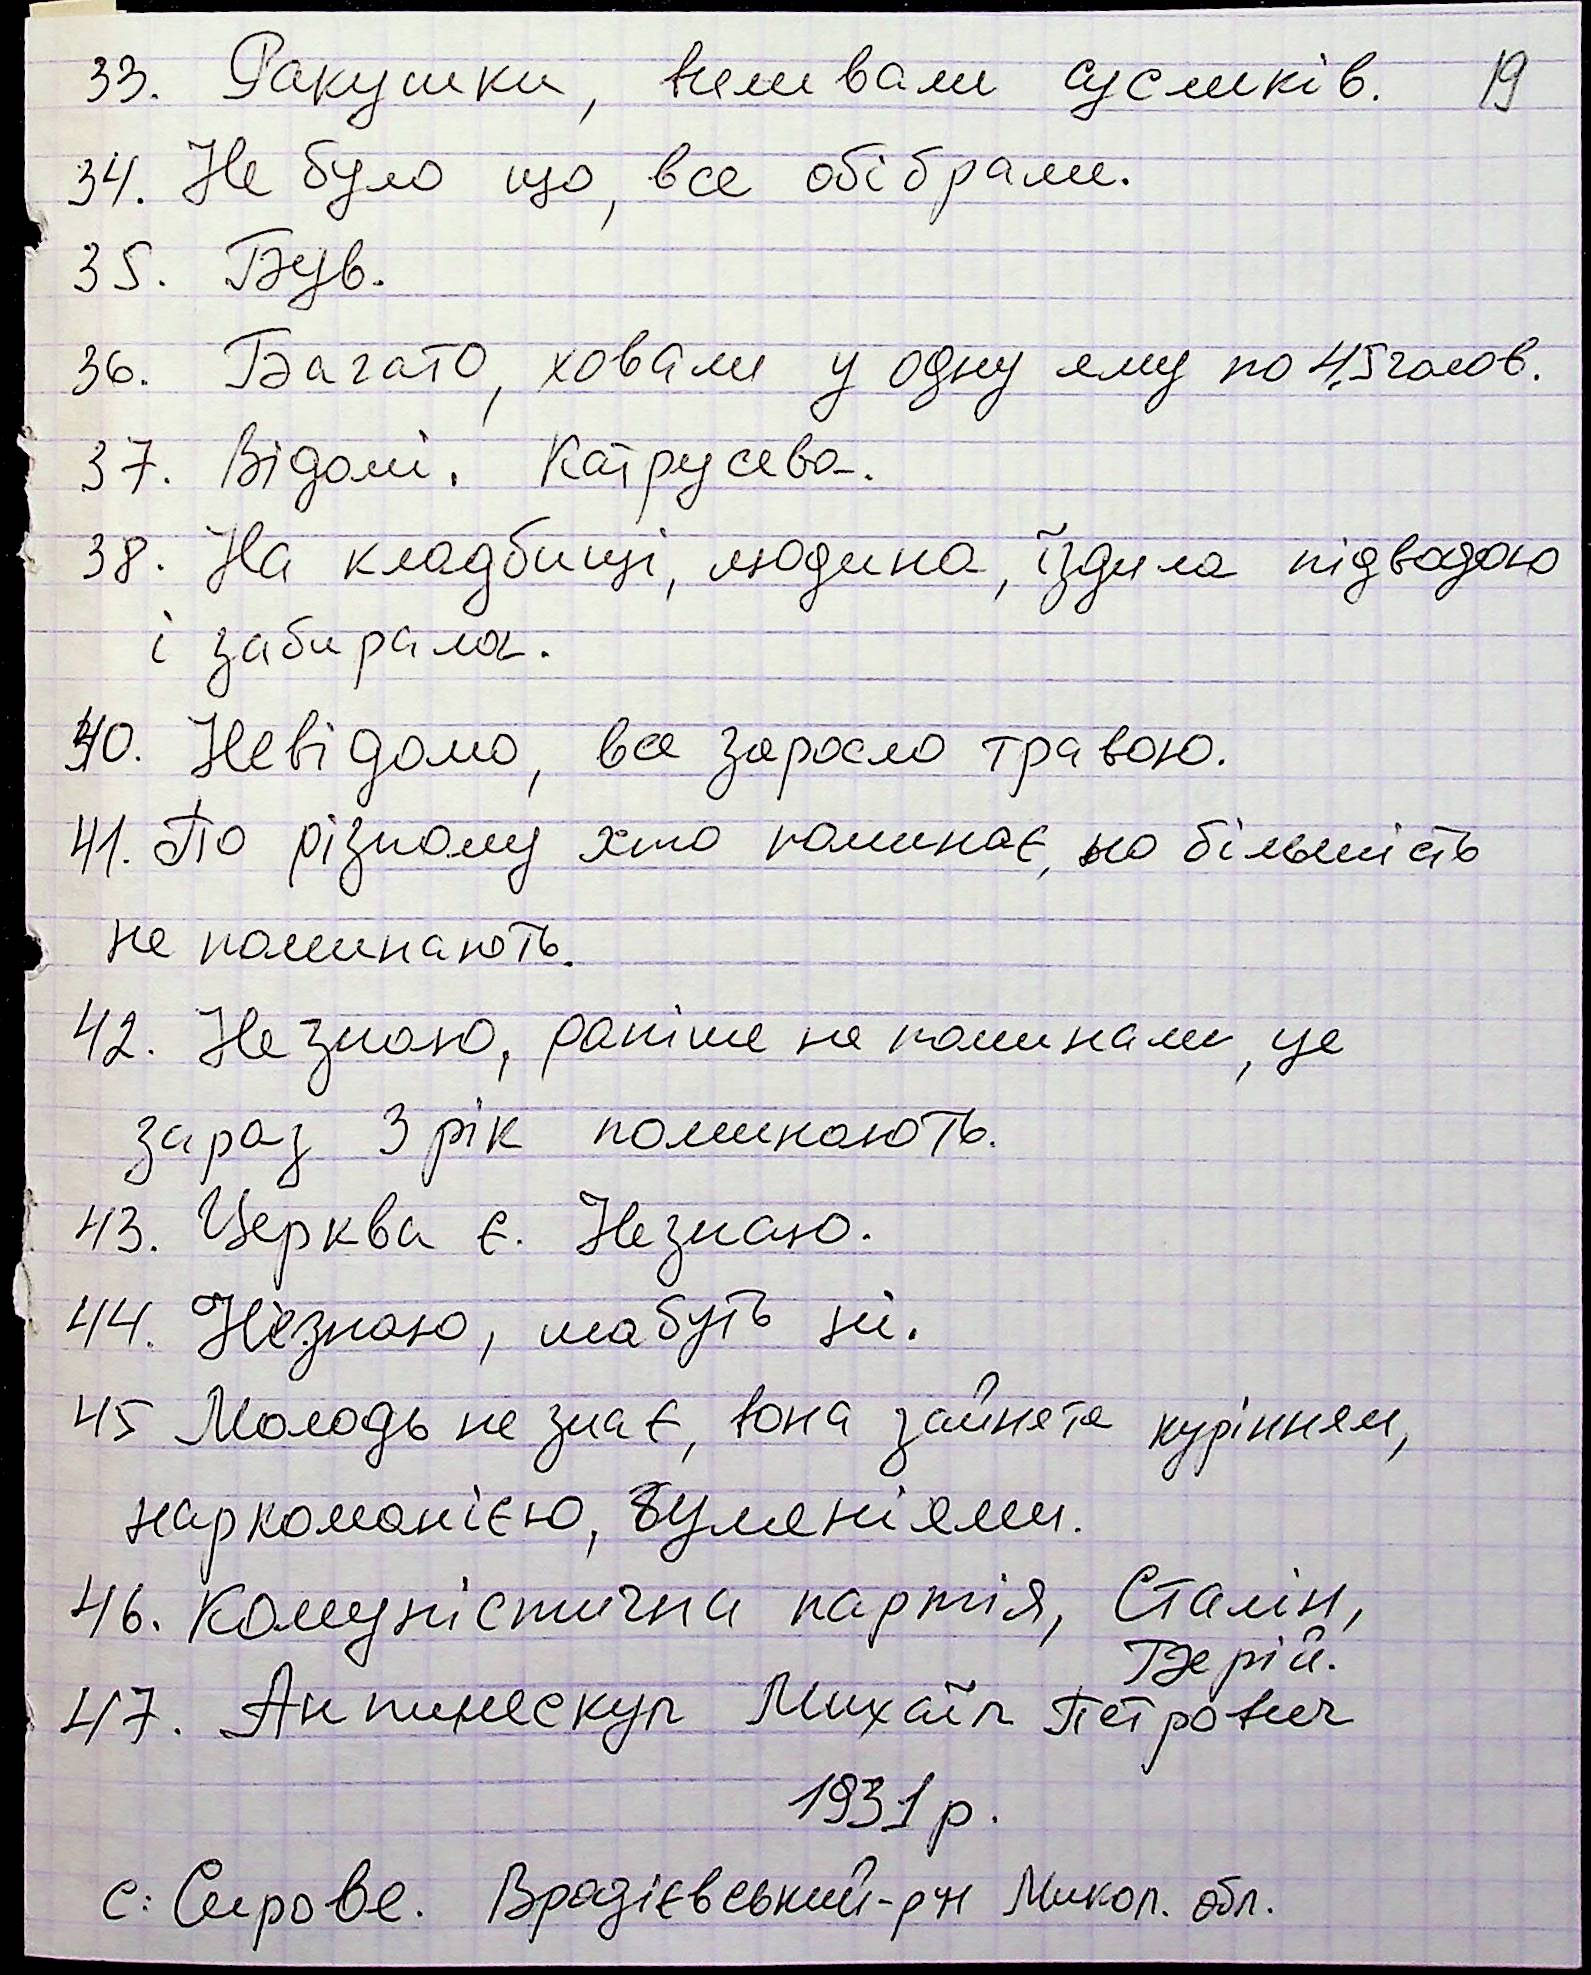 33. Ракушки, виливали сусликів. 19
34. Не було що, все обібрали.
35. Був.
36. Багато, ховали у одну яму по 4,5 голов.
37. Відомі. Катрусева.
38. На кладбищі, людина, їздила підводою
і забирала.
40. Невідомо, все заросло травою.
41. По різному хто поминає, но більшість
не поминають.
42. Не знаю, раніше не поминали, це
зараз 3 рік поминають.
43. Церква є. Незнаю.
44. Незнаю, мабуть ні.
45 Молодь не знає, вона зайнята курінням,
наркоманією, гуляніями.
46. Комуністична партія, Сталін,
Берій.
47. Антинескул Михаїл Петрович
1931 р.
с: Сирове. Врадієвський-р-н Микол. обл.